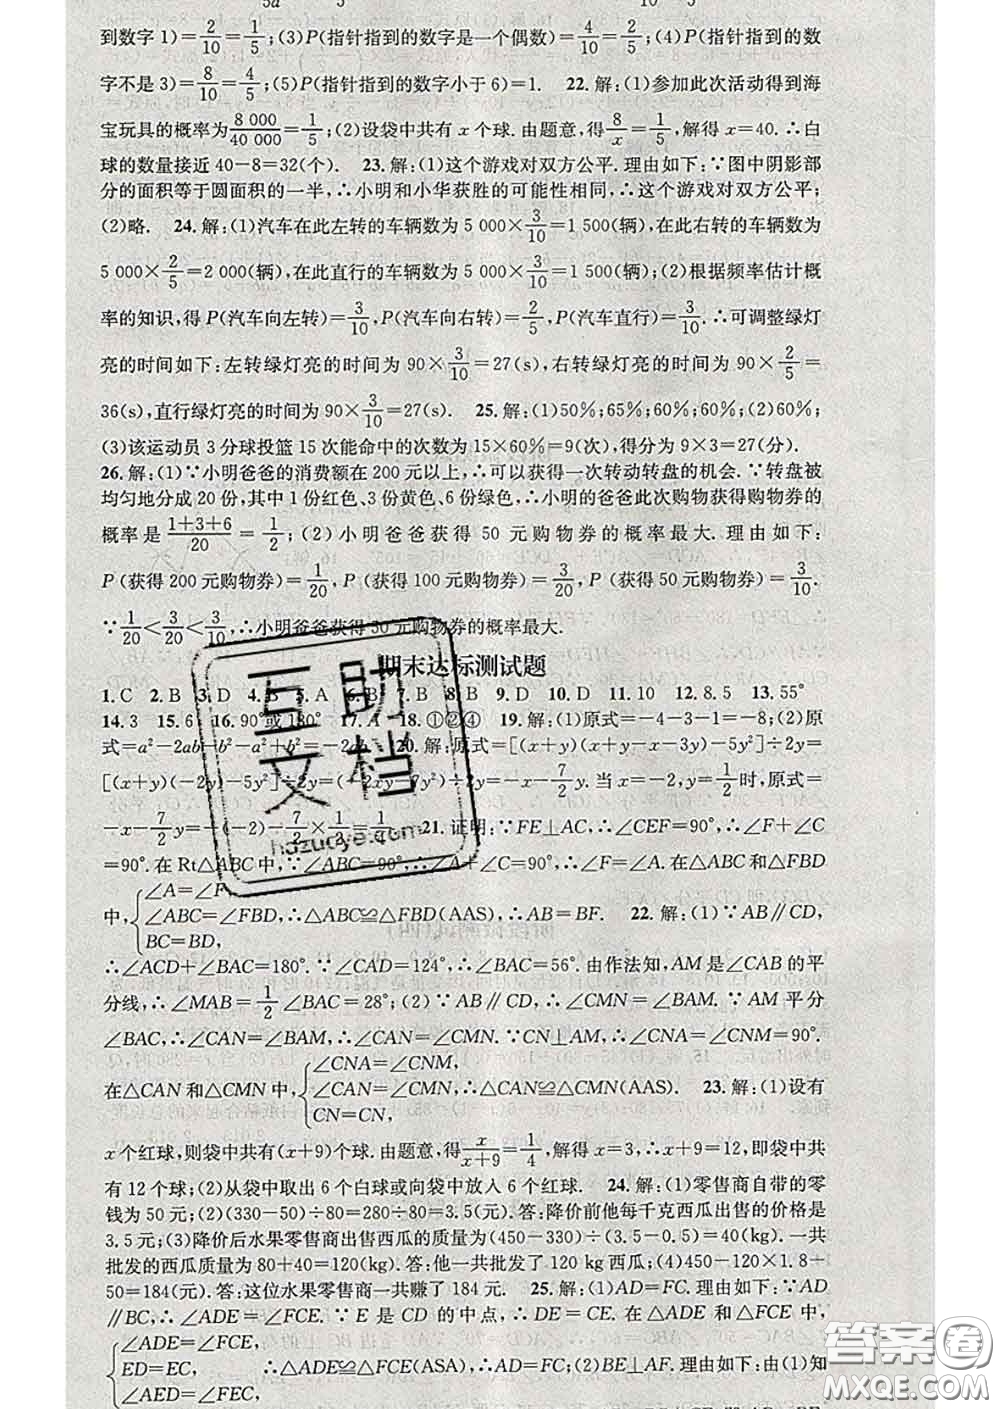 到数字1)=2/10=1/5;(3)P(指针指到的数字是一个偶数)=4/10=2/5;(4)P(指针指到的数
字不是3)=8/10=4/5;(5)P(指针指到的数字小于6)=1. 22.解:(1)参加此次活动得到海
宝玩具的概率为8 000/40 000=1/5;(2)设袋中共有x个球.由题意,得8/x=1/5,解得x=40.∴白
球的数量接近40-8=32(个). 23.解:(1)这个游戏对双方公平.理由如下:∵图中阴影部
分的面积等于圆面积的一半,∴小明和小华获胜的可能性相同,∴这个游戏对双方公平;
(2)略. 24.解:(1)汽车在此左转的车辆数为5 000×3/10=1 500(辆),在此右转的车辆数为
5 000×2/5=2 000(辆),在此直行的车辆数为5 000×3/10=1 500(辆);(2)根据频率估计概
率的知识,得P(汽车向左转)=3/10,P(汽车向右转)=2/5,P(汽车直行)=3/10.∴可调整绿灯
亮的时间如下:左转绿灯亮的时间为90×3/10=27(s),右转绿灯亮的时间为90×2/5=
36(s),直行绿灯亮的时间为90×3/10=27(s). 25.解:(1)50%;65%;60%;60%;(2)60%;
(3)该运动员3分球投篮15次能命中的次数为15×60%=9(次),得分为9×3=27(分).
26.解:(1)∵小明爸爸的消费额在200元以上,∴可以获得一次转动转盘的机会.∵转盘被
均匀地分成20份,其中1份红色、3份黄色、6份绿色,∴小明的爸爸此次购物获得购物券的
概率是1+3+6/20=1/2;(2)小明爸爸获得50元购物券的概率最大.理由如下:
P(获得200元购物券)=1/20,P(获得100元购物券)=3/20,P(获得50元购物券)=3/10.
∵1/20<3/20<3/10,∴小明爸爸获得50元购物券的概率最大.
期末达标测试题
1.C 2.B 3.D 4.B 5.A 6.B 7.B 8.B 9.D 10.D 11.10 12.8.5 13.55°
14.3 15.6 16.90°或180° 17.A 18.①②④ 19.解:(1)原式=-4-3-1=-8;(2)原
式=a²-2ab+b²-a²+b²=-2ab+ 20.解:原式=[(x+y)(x+y-x-3y)-5y²]÷2y=
[(x+y)(-2y)-5y²]÷2y=(-2xy-7y²)÷2y=-x-7/2y.当x=-2,y=1/2时,原式=
-x-7/2y=-(-2)-7/2×1/2=1/4. 21.证明:∵FE⊥AC,∴∠CEF=90°,∴∠F+∠C
=90°.在Rt△ABC中,∵∠ABC=90°,∴∠A+∠C=90°,∴∠A=∠F.在△ABC和△FBD
中,{∠A=∠F,
∠ABC=∠FBD,∴△ABC≌△FBD(AAS),∴AB=BF. 22.解:(1)∵AB∥CD,
BC=BD,
∴∠ACD+∠BAC=180°.∵∠CAD=124°,∴∠BAC=56°.由作法知,AM是∠CAB的平
分线,∴∠MAB=1/2∠BAC=28°;(2)∵AB∥CD,∴∠CMN=∠BAM.∵AM平分
∠BAC,∴∠CAN=∠BAM,∴∠CAN=∠CMN.∵CN⊥AM,∴∠CNA=∠CNM=90°.
在△CAN和△CMN中,{∠CNA=∠CNM,
∠CAN=∠CMN,∴△CAN≌△CMN(AAS). 23.解:(1)设有
CN=CN,
x个红球,则袋中共有(x+9)个球.由题意,得x/x+9=1/4,解得x=3,∴x+9=12,即袋中共
有12个球;(2)从袋中取出6个白球或向袋中放入6个红球. 24.解:(1)零售商自带的零
钱为50元;(2)(330-50)÷80=280÷80=3.5(元).答:降价前他每千克西瓜出售的价格是
3.5元;(3)降价后水果零售商出售西瓜的质量为(450-330)÷(3.5-0.5)=40(kg).一共
批发的西瓜质量为80+40=120(kg).答:他一共批发了120 kg西瓜;(4)450-120×1.8-
50=184(元).答:这位水果零售商一共赚了184元. 25.解:(1)AD=FC.理由如下:∵AD
∥BC,∴∠ADE=∠FCE.∵E是CD的中点,∴DE=CE.在△ADE和△FCE中,
{∠ADE=∠FCE,
ED=EC, ∴△ADE≌△FCE(ASA),∴AD=FC;(2)BE⊥AF.理由如下:由(1)知
∠AED=∠FEC,
互助
文档
hdzuoye.com
答案圈
MXQE.COM